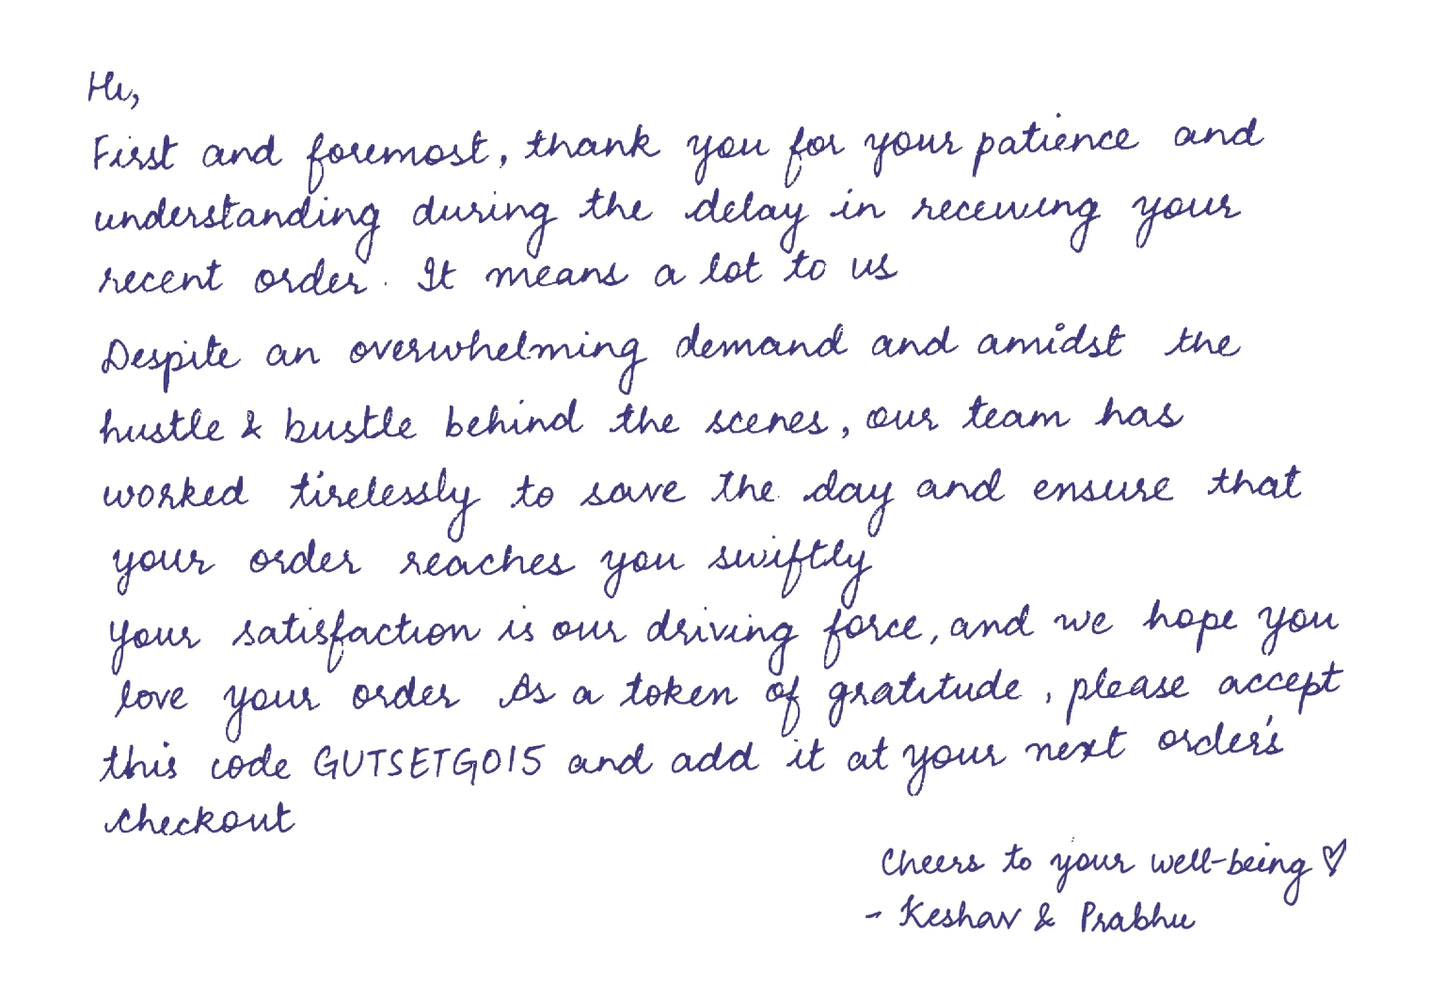 Hi,
First and foremost, thank you for your patience and
understanding during the delay in receiving your
recent order. It means a lot to us
Despite an overwhelming demand and amidst the
hustle & bustle behind the scenes, our team has
worked tirelessly to save the day and ensure that
your order reaches you swiftly
Your satisfaction is our driving force, and we hope you
love your order As a token of gratitude, please accept
this code GUTSETGO15 and add it at your next order's
checkout
Cheers to your well-being ♡
- Keshav & Prabhu